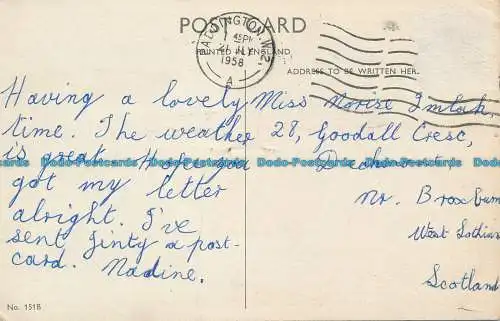 POST CARD
PADDINGTON. W.2
45 PM
21 JLY
1958
A
PRINTED IN ENGLAND
ADDRESS TO BE WRITTEN HERE
Having a lovely
time. The weather
is great. Hope you
got my letter
alright. I've
sent Jinty a post-
card. Nadine.
Miss Imlah,
28, Goodall Cresc,
Nr. Broxburn
West Lothian
Scotland
Dodo-Postcards Dodo-Postcards Dodo-Postcards Dodo-Postcards Dodo-Postcards
No. 151B